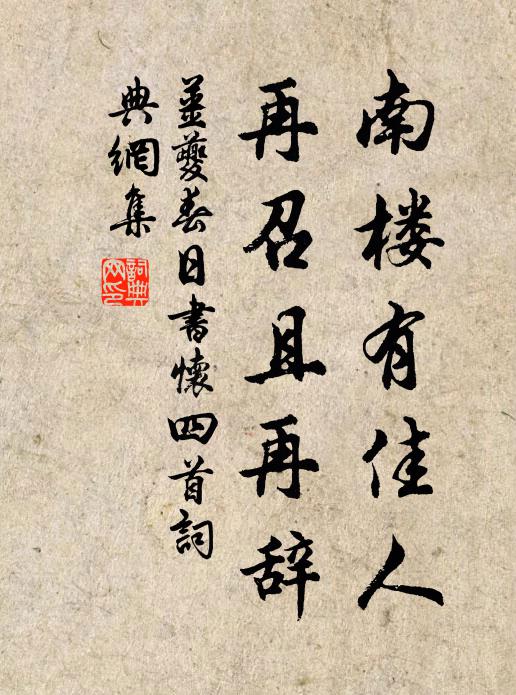 南楼有佳人
再召且再辞
姜夔春日书懷四首詞
典網集
詞典
网印